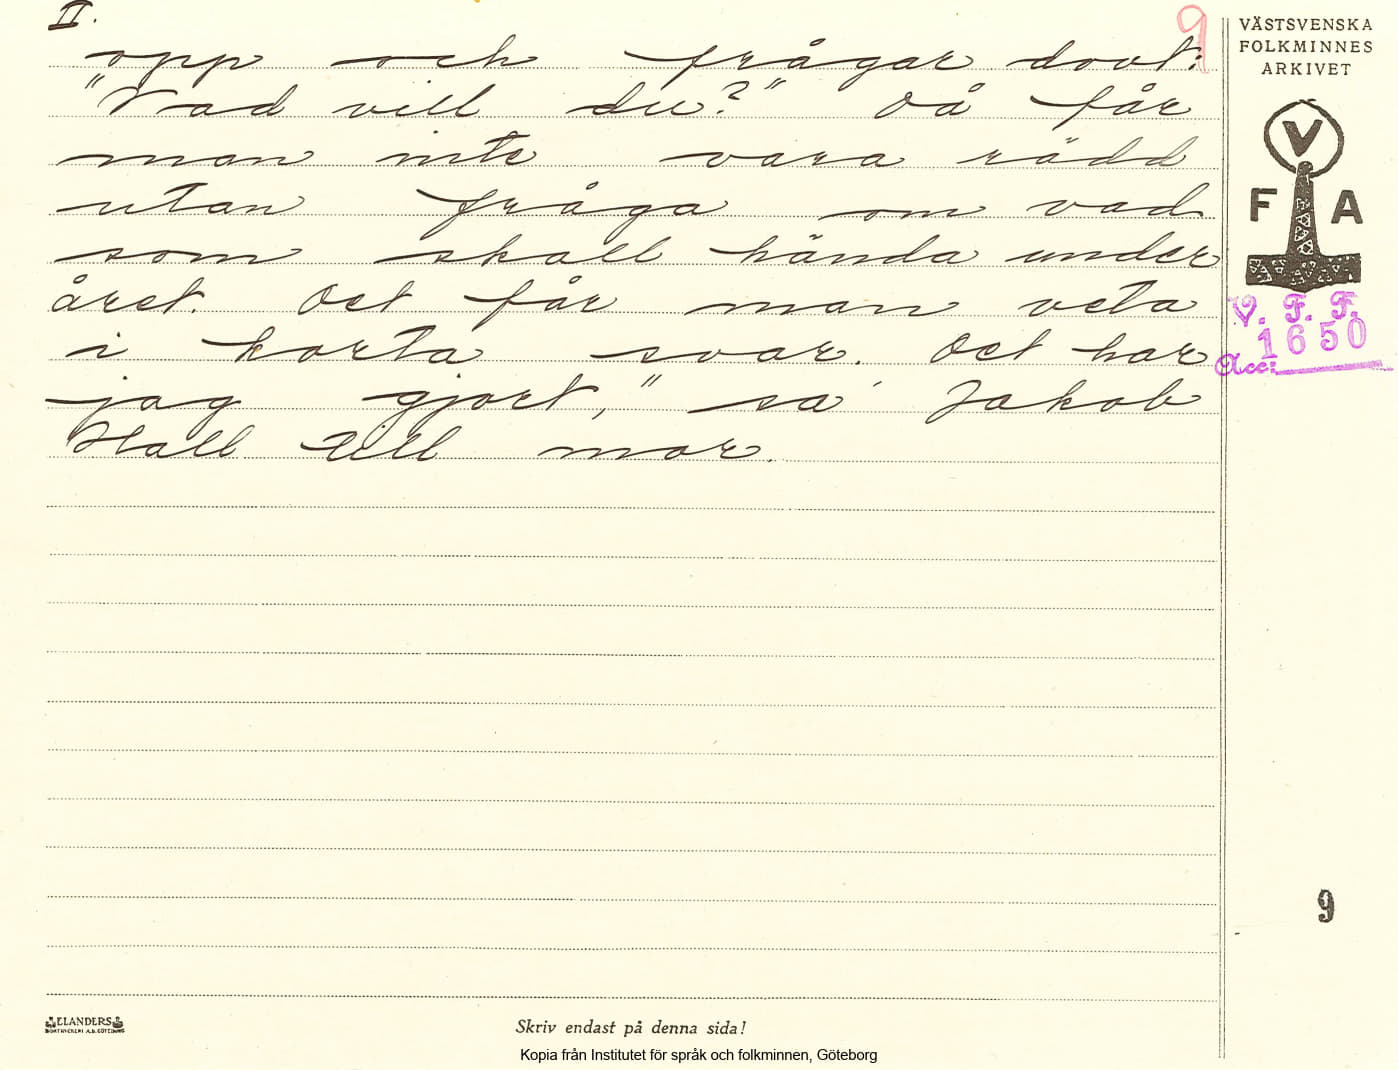 II.
9
opp och frågar dovt:
"Vad vill du?" Då får
man inte vara rädd
utan fråga om vad
som skall hända under
året. Det får man veta
i korta svar. Det har
jag gjort," sa' Jakob
Hall till mor.
VÄSTSVENSKA
FOLKMINNES
ARKIVET
V
F A
V. F. F.
1650
Acc:
9
ELANDERS
BOKTRYCKERI A.B. GÖTEBORG
Skriv endast på denna sida!
Kopia från Institutet för språk och folkminnen, Göteborg